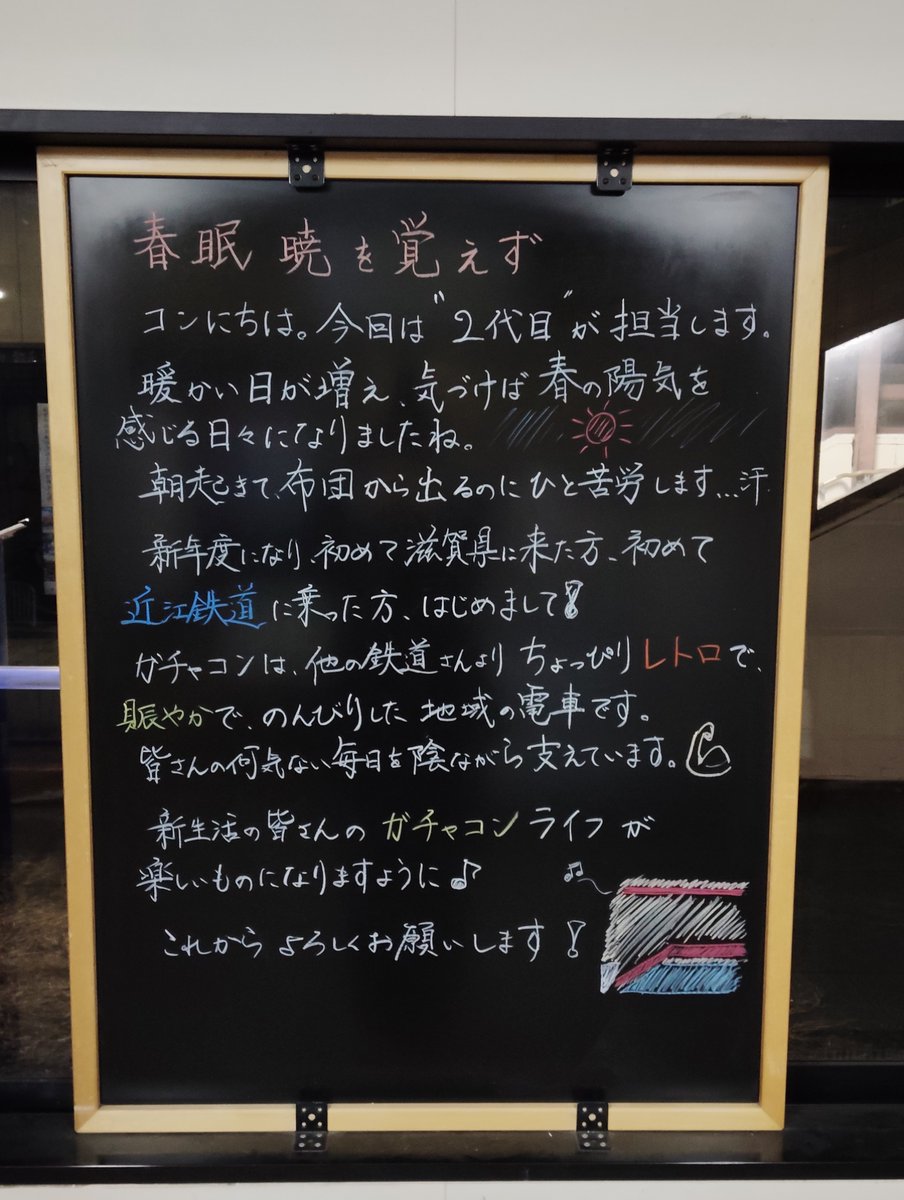 春眠 暁を覚えず
コンにちは。今回は"2代目"が担当します。
暖かい日が増え、気づけば春の陽気を
感じる日々になりましたね。
朝起きて、布団から出るのにひと苦労します...汗
新年度になり、初めて滋賀県に来た方、初めて
近江鉄道に乗った方、はじめまして!
ガチャコンは、他の鉄道さんよりちょっぴりレトロで、
賑やかで、のんびりした地域の電車です。
皆さんの何気ない毎日を陰ながら支えています。
新生活の皆さんのガチャコンライフが
楽しいものになりますように♪
これからよろしくお願いします!